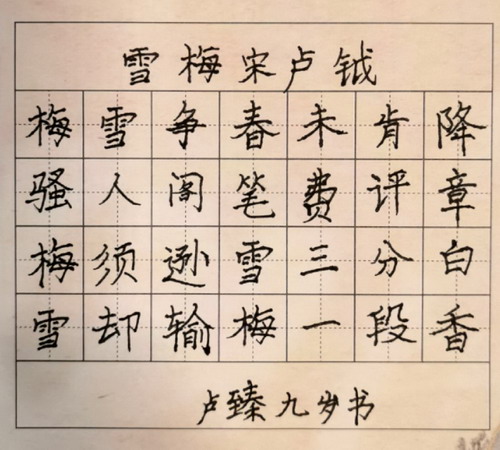 雪梅宋卢钺
梅雪争春未肯降
骚人阁笔费评章
梅须逊雪三分白
雪却输梅一段香
卢臻九岁书